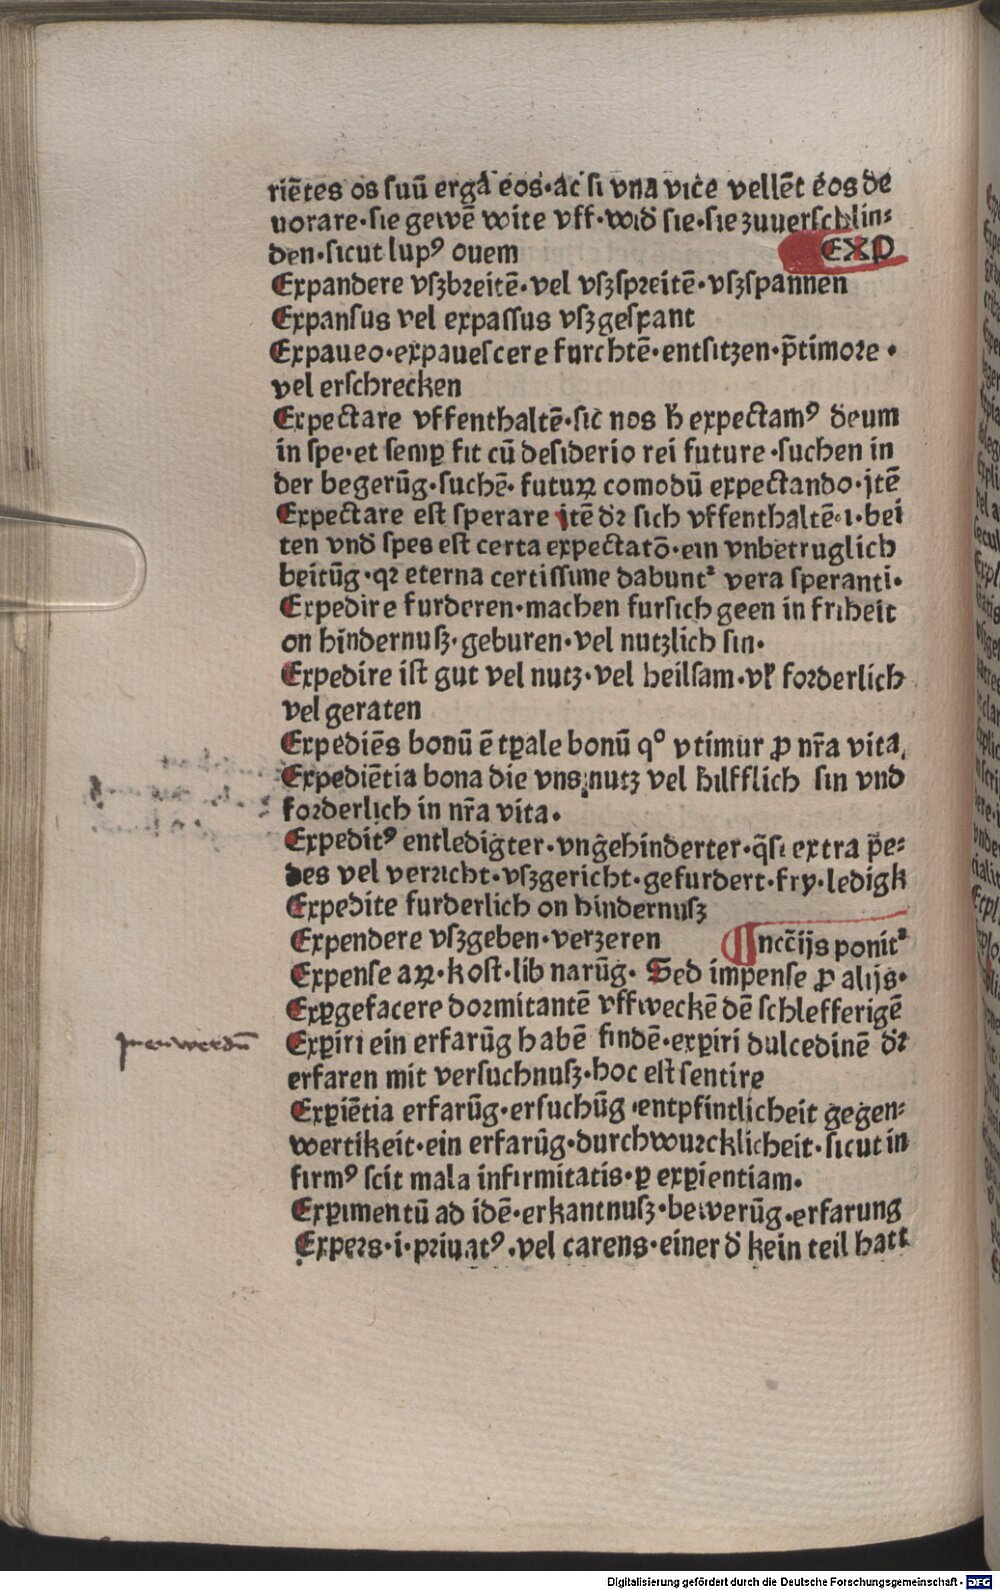 riētes os suū erga eos·ac si vna vice vellēt eos de
uorare·sie gewē wite vff·wid̄ sie·sie zuuerschlin⸗
den·sicut lupꝰ ouem
EXP
Expandere vſzbꝛeitē·vel vſzſpꝛeitē·vſzſpannen
Expanſus vel expaſſus vſzgeſpant
Expaueo·expaueſcere furchtē·entſitzen·p̄timoꝛe·
vel erſchrecken
Expectare vffenthaltē·ſic nos h̄ expectamꝰ deum
in ſpe·et ſemꝑ fit cū deſiderio rei future·ſuchen in
der begerūg·ſuchē·futuꝝ comodū expectando·jtē
Expectare eſt ſperare jtē dꝛ ſich vffenthaltē·i·bei
ten vnd ſpes eſt certa expectatō·ein vnbetruglich
beitūg·qꝛ eterna certiſſime dabuntᷣ vera ſperanti·
Expedire furderen·machen furſich geen in friheit
on hindernuſz·geburen·vel nutzlich ſin·
Expedire iſt gut vel nutz·vel heilſam·vl̓ foꝛderlich
vel geraten
Expediēs bonū ē tꝑale bonū qͦ vtimur ꝓ nr̄a vita,
Expediētia bona die vns nutz vel hilfflich ſin vnd
foꝛderlich in nr̄a vita·
Expeditꝰ entledigter·vngehinderter·q̄ſi extra pe⸗
des vel verꝛicht·vſzgericht·gefurdert·fry·ledigk
Expedite furderlich on hindernuſz
Expendere vſzgeben·verzeren
Inccījs ponitᷣ
Expenſe aꝝ·koſt·lib narūg·Sed impenſe ꝓ alijs·
Exꝑgefacere doꝛmitantē vffweckē dē ſchlefferigē
Exꝑiri ein erfarūg habē findē·exꝑiri dulcedinē dꝛ
inen werdn̄
erfaren mit verſuchnuſz·hoc eſt ſentire
Exꝑiētia erfarūg·erſuchūg·entpfintlicheit gegen⸗
wertikeit·ein erfarūg·durchwurcklicheit·ſicut in
firmꝰ ſcit mala infirmitatis·ꝑ exꝑientiam·
Exꝑimentū ad idē·erkantnuſz·bewerūg·erfarung
Expers·i·priuatꝰ·vel carens·einer d̄ kein teil hatt
Digitalisierung gefördert durch die Deutsche Forschungsgemeinschaft - DFG